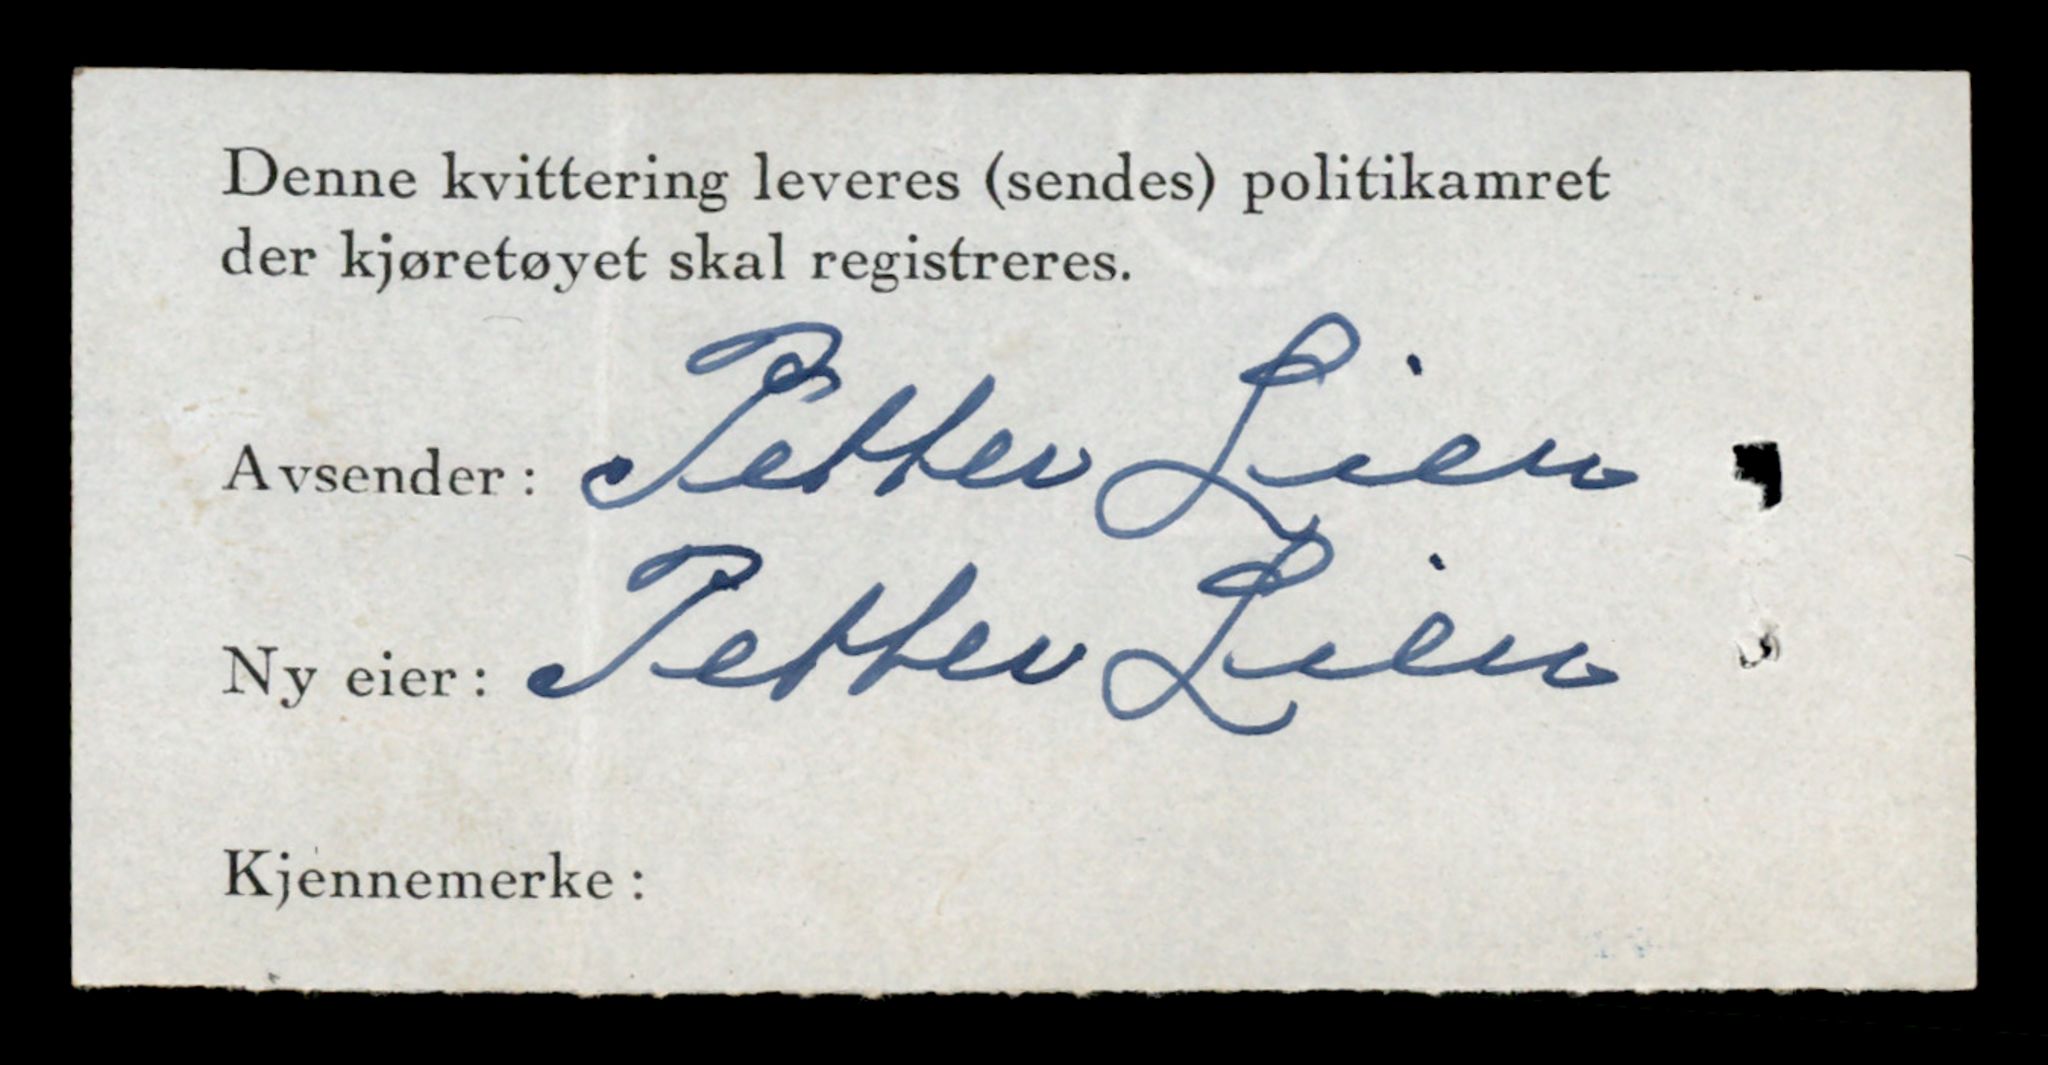 Denne kvittering leveres (sendes) politikamret
der kjøretøyet skal registreres.
Avsender: Petter Lien
Ny eier: Petter Lien
Kjennemerke: